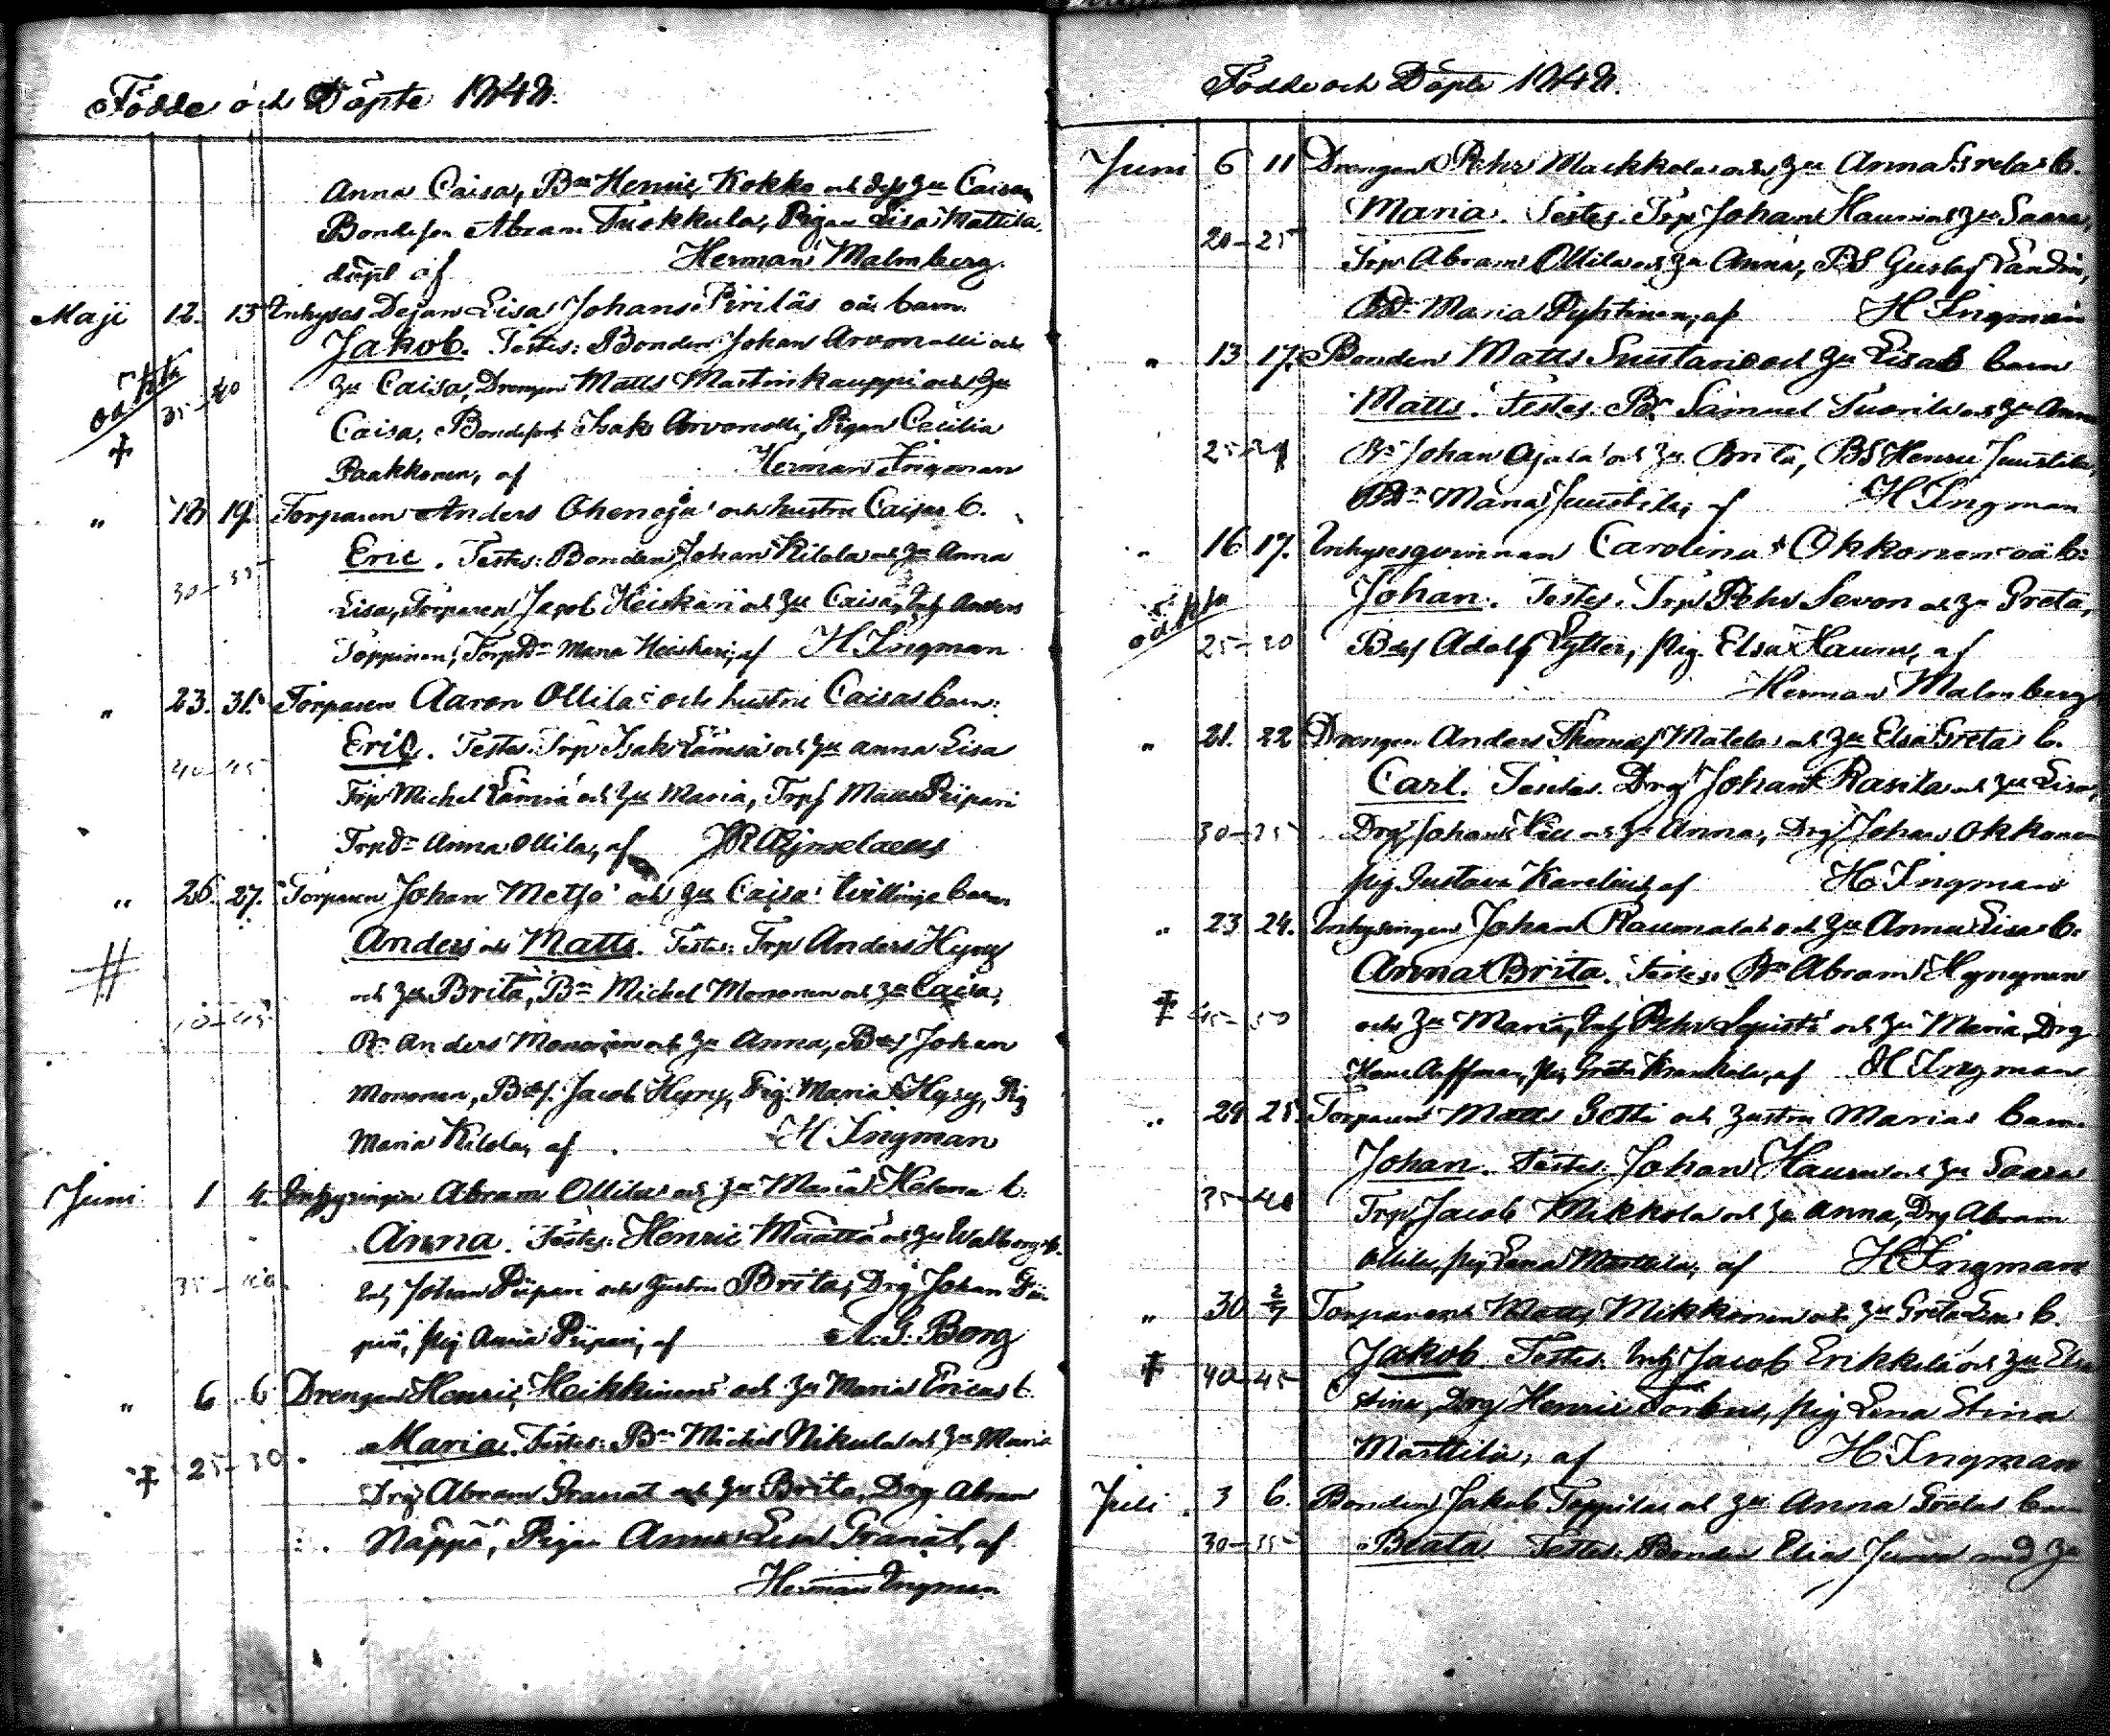 Födde och Döpte 1848.
Anna Caisa, Bn Henric Kokko och dess hu Caisa
Bondeson Abram Tuokkula, Pigan Lisa Mattila,
döpt af Herman Malmberg.
Maji 12. 13 Inhyses Dejan Lisa Johansd. Piriläs oä. barn
Jakob. Testes: Bonden Johan Arvonolli och
oäkta 35–40 hu Caisa, Drengen Matts Martinkauppi och hu
Caisa, Bondeson Isak Arvonolli, Pigan Cecilia
Paakkonen, af Herman Ingman
" 18 19. Torparen Anders Ohenoja och hustru Caisas b.
Eric. Testes: Bonden Johan Kilola och hu Anna
30–35 Lisa, Torparen Jacob Heiskari och hu Caisa, Inh Anders
Toppinen, TorpDr Maria Heiskari, af H Ingman
" 23. 31. Torparen Aaron Ollila och hustru Caisas barn:
Eric. Testes. Trp Isak Lämsä och hu Anna Lisa
40–45 Trp Michel Lämsä och hu Maria, Trps Matts Piipari
Trpdr Anna Ollila, af
" 26. 27. Torparen Johan Metso och hu Caisas tvillinge barn
Anders och Matts. Testes: Trp Anders Hyry
och hu Brita, Bn Michel Mononen och hu Caisa,
Bn Anders Mononen och hu Anna, Bds Johan
Mononen, Bds. Jacob Hyry, Pig. Maria Hyry, Pig
Maria Kilola, af H Ingman
Juni 1 4. Inhysingen Abram Ollila och hu Maria Helena b.
Anna. Testes. Henric Määttä och hu Walborg
35–40. Inh Johan Piipari och hustru Brita, Drg Johan
pig Anna Piipari, af A. G. Borg
" 6 6 Drengen Henric Heikkinens och hu Maria Ericas b.
Maria. Testes: Bn Michel Nikula och hu Maria
25–30. Drg Abram Granat och hu Brita, Drg Abram
Näppä, Pigan Anna Lisa Granat, af
Herman Ingman
Födde och Döpte 1848.
Juni 6 11 Drengen Pehr Markkolas och hu Anna Gretas b.
Maria. Testes. Trp Johan Hauru och hu Saara,
20–25 Trp Abram Ollila och hu Anna, BS Gustaf Sandin,
BDr Maria Pyhtinen, af H Ingman
" 13 17. Bonden Matts Suutaris och hu Lisas barn
Matts. Testes. Bn Samuel Tuorila och hu Anna
25–29 Bn Johan Ojala och hu Brita, BS Henric Juustila,
BDr Maria Juustila, af H Ingman
" 16 17. Inhysesqvinnan Carolina Okkonens oä b:
Johan. Testes. Trp Pehr Sevon och hu Greta,
oäkta 25–30 Bdsf Adolf Lytter, pig. Elsa Hauru, af
Herman Malmberg
" 21. 22 Drengen Anders Thomas Mälelas och hu Elsa Gretas b.
Carl. Testes. Drg Johan Rasila och hu Lisa,
30–35 Drg Johan och hu Anna, Drg Johan Okkonen
pig Gustava Karelius, af H Ingman
" 23 24. Inhysingen Johan Raumalas och hu Anna Lisas b.
Anna Brita. Testes. Bn Abram Hyrynen
45–50 och hu Maria, Inh Pehr Lepistö och hu Maria, Drg
Hans Auffman, pig Greta Krankala, af H Ingman
" 24 25. Torparen Matts Gottis och hustru Marias barn.
Johan. Testes. Johan Hauru och hu Saara
35–40 Trp Jacob Mikkola och hu Anna, Drg Abram
Ollila, pig Lena Marttila, af H Ingman
" 30 2/7 Torparen Matts Mikkonens och hu Greta Lenas b.
Jakob. Testes. Inh Jacob Erikkilä och hu Elsa
40–45 Stina, Drg Henric Torkus, pig Lena Stina
Marttila, af H Ingman
Juli 3 6. Bonden Jakob Toppilas och hu Anna Gretas barn
30–35 Beata. Testes: Bonden Elias Junna med hu